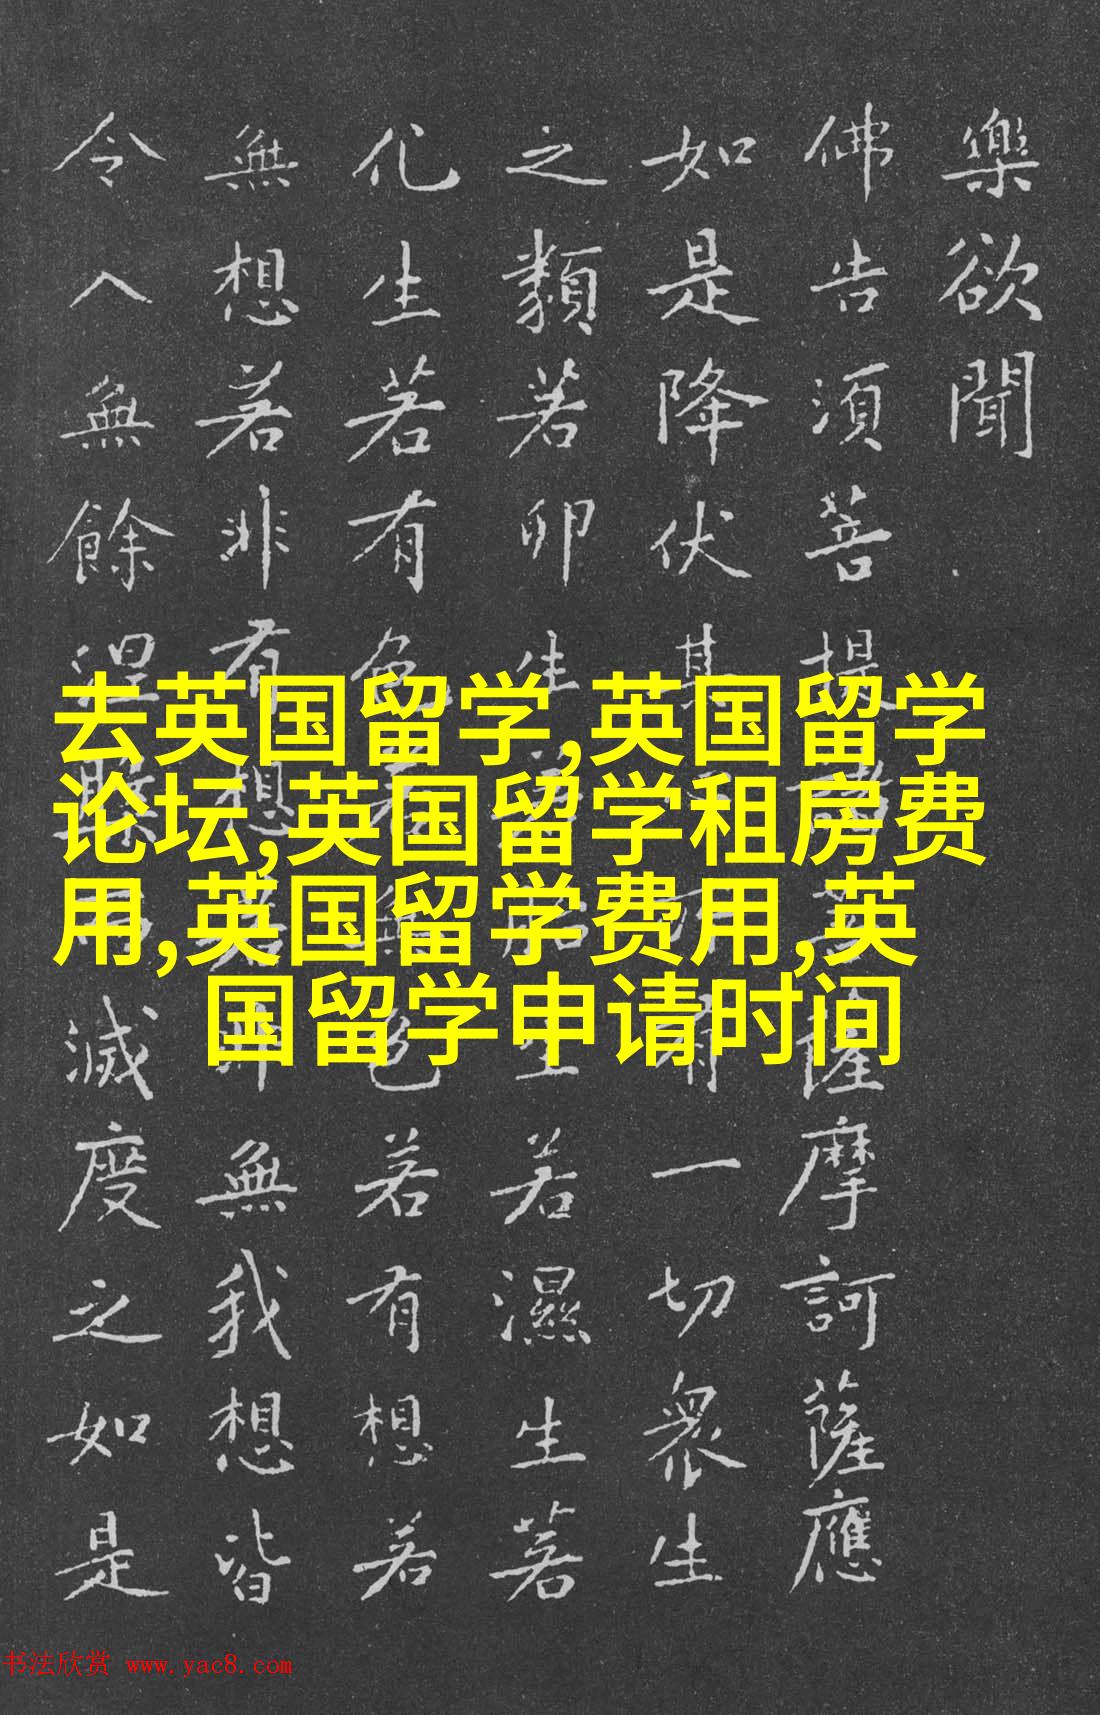 樂欲聞
佛告須菩提薩摩訶薩應
如是降伏其有一切衆生
之類若卵生生若濕生若
化生若有色無色若有想若
無想若非有想若非無我想皆
令入無餘涅滅度之如是
去英国留学,英国留学
论坛,英国留学租房费
用,英国留学费用,英
国留学申请时间
书法欣赏 www.yac8.com